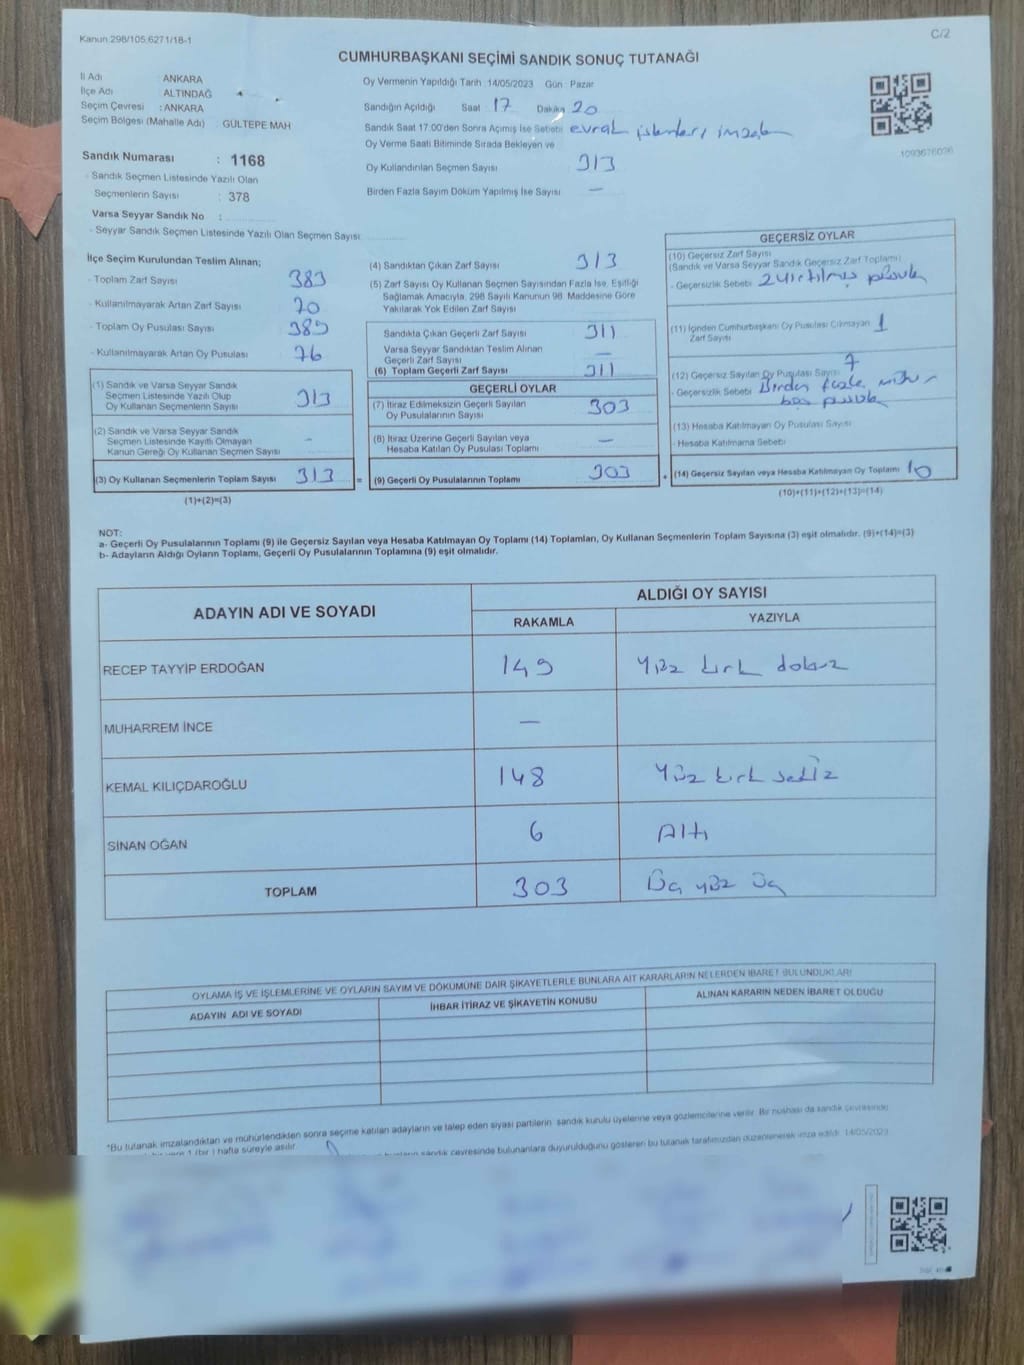 Kanun 298/105,6271/18-1
C/2
CUMHURBAŞKANI SEÇİMİ SANDIK SONUÇ TUTANAĞI
İl Adı ANKARA
İlçe Adı ALTINDAĞ
Seçim Çevresi : ANKARA
Seçim Bölgesi (Mahalle Adı) GÜLTEPE MAH
Sandık Numarası : 1168
- Sandık Seçmen Listesinde Yazılı Olan
Seçmenlerin Sayısı : 378
Varsa Seyyar Sandık No :
- Seyyar Sandık Seçmen Listesinde Yazılı Olan Seçmen Sayısı
Oy Vermenin Yapıldığı Tarih 14/05/2023 Gün : Pazar
Sandığın Açıldığı Saat 17 Dakika 20
Sandık Saat 17:00'den Sonra Açımış İse Sebebi evrak işlemleri imzala
Oy Verme Saati Bitiminde Sırada Bekleyen ve
Oy Kullandırılan Seçmen Sayısı 313
Birden Fazla Sayım Döküm Yapılmış İse Sayısı —
1093676036
İlçe Seçim Kurulundan Teslim Alınan;
- Toplam Zarf Sayısı 383
- Kullanılmayarak Artan Zarf Sayısı 70
- Toplam Oy Pusulası Sayısı 389
- Kullanılmayarak Artan Oy Pusulası 76
(1) Sandık ve Varsa Seyyar Sandık
Seçmen Listesinde Yazılı Olup
Oy Kullanan Seçmenlerin Sayısı 313
(2) Sandık ve Varsa Seyyar Sandık
Seçmen Listesinde Kayıtlı Olmayan
Kanun Gereği Oy Kullanan Seçmen Sayısı -
(3) Oy Kullanan Seçmenlerin Toplam Sayısı 313 =
(1)+(2)=(3)
(4) Sandıktan Çıkan Zarf Sayısı 313
(5) Zarf Sayısı Oy Kullanan Seçmen Sayısından Fazla İse, Eşitliği
Sağlamak Amacıyla, 298 Sayılı Kanunun 98. Maddesine Göre
Yakılarak Yok Edilen Zarf Sayısı
Sandıkta Çıkan Geçerli Zarf Sayısı 311
Varsa Seyyar Sandıktan Teslim Alınan
Geçerli Zarf Sayısı —
(6) Toplam Geçerli Zarf Sayısı 311
GEÇERLİ OYLAR
(7) İtiraz Edilmeksizin Geçerli Sayılan
Oy Pusulalarının Sayısı 303
(8) İtiraz Üzerine Geçerli Sayılan veya
Hesaba Katılan Oy Pusulası Toplamı —
(9) Geçerli Oy Pusulalarının Toplamı 303 +
GEÇERSİZ OYLAR
(10) Geçersiz Zarf Sayısı
(Sandık ve Varsa Seyyar Sandık Geçersiz Zarf Toplamı)
- Geçersizlik Sebebi 2 yırtılmış pusula
(11) İçinden Cumhurbaşkanı Oy Pusulası Çıkmayan 1
Zarf Sayısı
(12) Geçersiz Sayılan Oy Pusulası Sayısı 7
- Geçersizlik Sebebi Birden fazla mühür
boş pusula
(13) Hesaba Katılmayan Oy Pusulası Sayısı
- Hesaba Katılmama Sebebi
(14) Geçersiz Sayılan veya Hesaba Katılmayan Oy Toplamı 10
(10)+(11)+(12)+(13)=(14)
NOT:
a- Geçerli Oy Pusulalarının Toplamı (9) ile Geçersiz Sayılan veya Hesaba Katılmayan Oy Toplamı (14) Toplamları, Oy Kullanan Seçmenlerin Toplam Sayısına (3) eşit olmalıdır. (9)+(14)=(3)
b- Adayların Aldığı Oyların Toplamı, Geçerli Oy Pusulalarının Toplamına (9) eşit olmalıdır.
ADAYIN ADI VE SOYADI
ALDIĞI OY SAYISI
RAKAMLA YAZIYLA
RECEP TAYYİP ERDOĞAN 149 Yüz kırk dokuz
MUHARREM İNCE —
KEMAL KILIÇDAROĞLU 148 Yüz kırk sekiz
SİNAN OĞAN 6 Altı
TOPLAM 303 Üç yüz üç
OYLAMA İŞ VE İŞLEMLERİNE VE OYLARIN SAYIM VE DÖKÜMÜNE DAİR ŞİKAYETLERLE BUNLARA AİT KARARLARIN NELERDEN İBARET BULUNDUKLARI
ADAYIN ADI VE SOYADI
İHBAR İTİRAZ VE ŞİKAYETİN KONUSU
ALINAN KARARIN NEDEN İBARET OLDUĞU
*Bu tutanak imzalandıktan ve mühürlendikten sonra seçime katılan adayların ve talep eden siyasi partilerin sandık kurulu üyelerine veya gözlemcilerine verilir. Bir nüshası da sandık çevresinde
1 (bir) hafta süreyle asılır
sandık çevresinde bulunanlara duyurulduğunu gösteren bu tutanak tarafımızdan düzenlenerek imza edildi. 14/05/2023